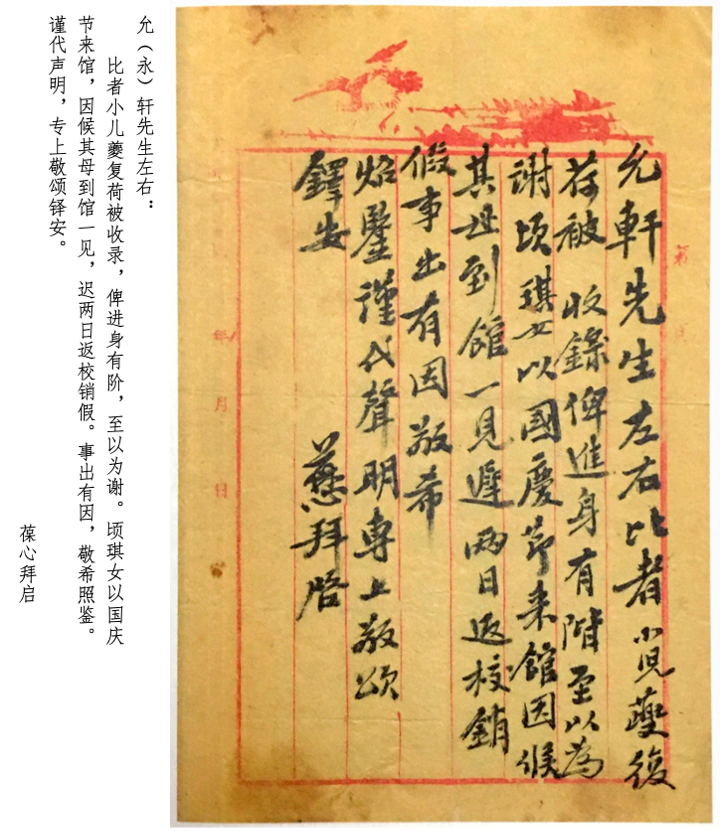 允（永）轩先生左右：
比者小儿夔复荷被收录，俾进身有阶，至以为谢。顷琪女以国庆
节来馆，因候其母到馆一见，迟两日返校销假。事出有因，敬希照鉴。
谨代声明，专上敬颂铎安。
葆心拜启
允軒先生左右比者小兒夔復
荷被 收錄俾進身有階至以為
謝頃琪女以國慶節来館因候
其母到館一見遲两日返校銷
假事出有因敬希
炤鑒謹代聲明專上敬頌
鐸安
拜啓
第
年 月 日